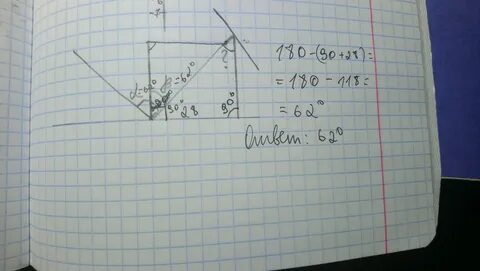 180-(90+28)=
=180-118=
=62°
α=62° β=62°
90° 28 90°
Ответ: 62°